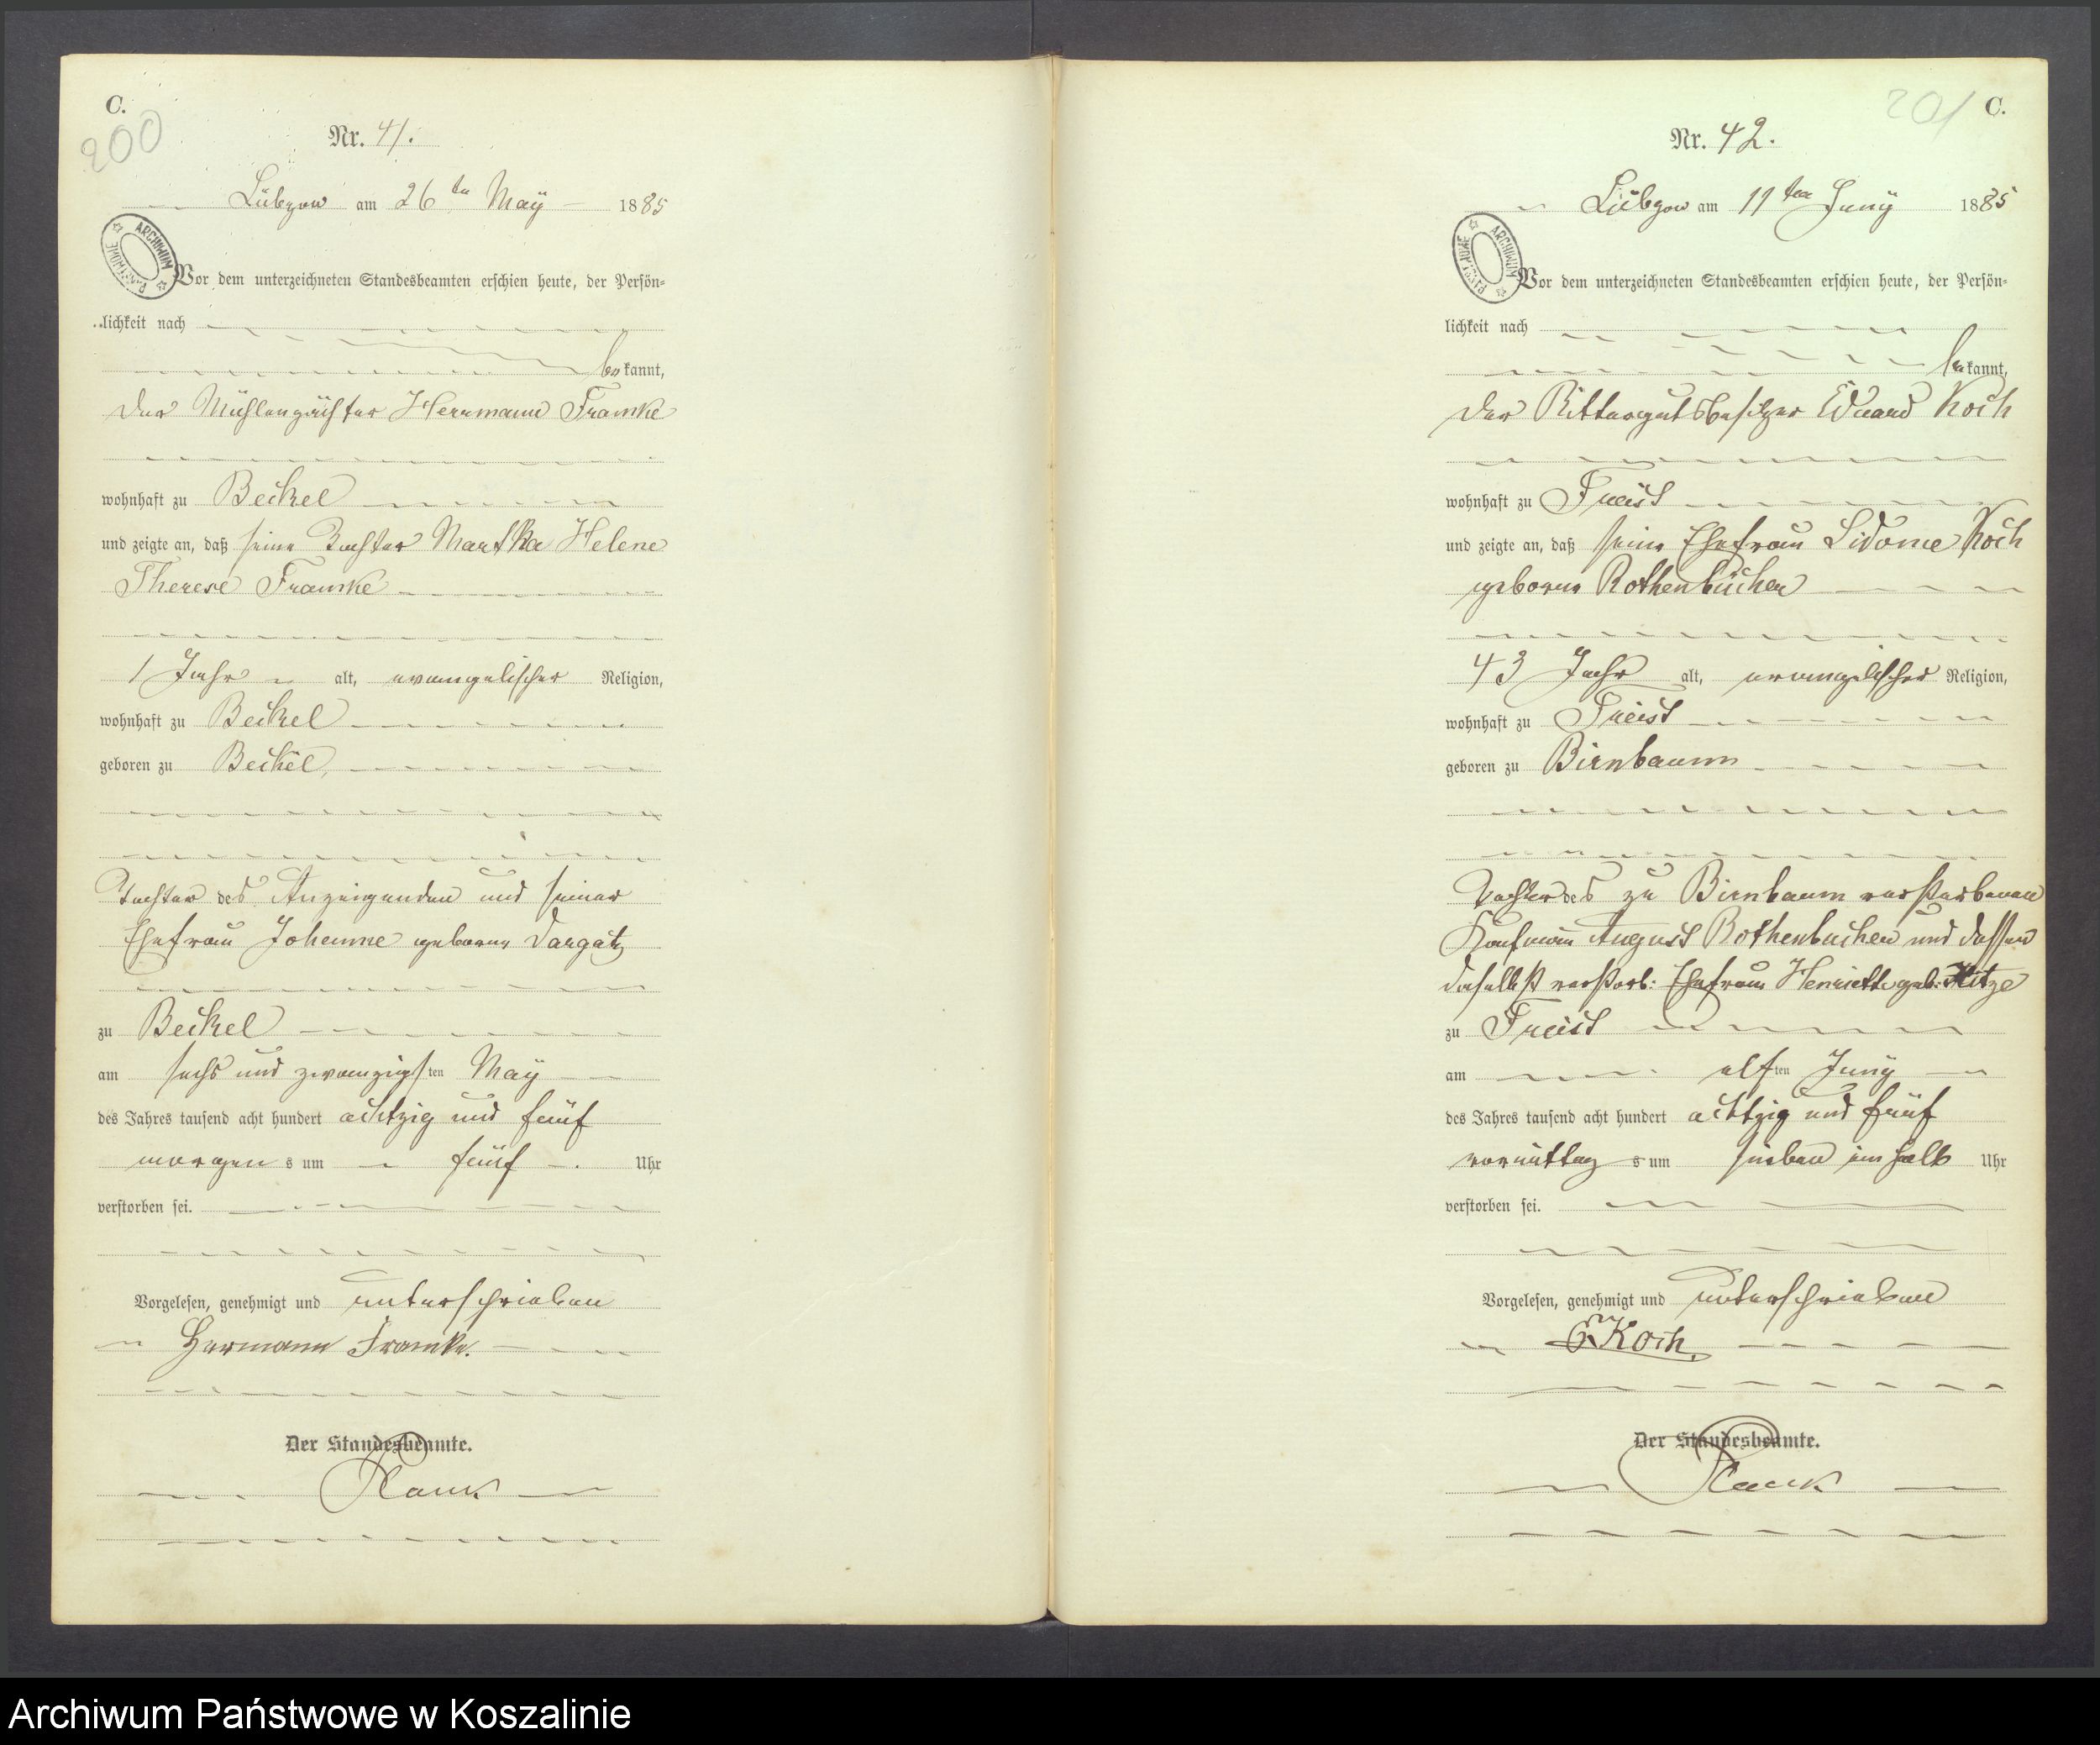 C.
200
Nr. 41.
Lübzow am 26ten May 1885
ARCHIWUM PAŃSTWOWE
Vor dem unterzeichneten Standesbeamten erschien heute, der Persön-
lichkeit nach
bekannt,
der Mühlenpächter Herrmann Framke
wohnhaft zu Beckel
und zeigte an, daß seine Tochter Martha Helene
Therese Framke
1 Jahr alt, evangelischer Religion,
wohnhaft zu Beckel
geboren zu Beckel,
Tochter des Anzeigenden und seiner
Ehefrau Johanne geborne Dargatz
zu Beckel
am sechs und zwanzigsten May
des Jahres tausend acht hundert achtzig und fünf
morgens um fünf Uhr
verstorben sei.
Vorgelesen, genehmigt und unterschrieben
Hermann Framke.
Der Standesbeamte.
201 C.
Nr. 42.
Lübzow am 11ten Juny 1885
ARCHIWUM PAŃSTWOWE
Vor dem unterzeichneten Standesbeamten erschien heute, der Persön-
lichkeit nach
bekannt,
der Rittergutsbesitzer Eduard Koch
wohnhaft zu Treist
und zeigte an, daß seine Ehefrau Sidonie Koch
geborne Rothenbücher
43 Jahr alt, evangelischer Religion,
wohnhaft zu Treist
geboren zu Birnbaum
Tochter des zu Birnbaum verstorbenen
Kaufmann August Rothenbücher und dessen
daselbst verstorb: Ehefrau Henriette geb:
zu Treist
am elften Juny
des Jahres tausend acht hundert achtzig und fünf
vormittags um sieben ein halb Uhr
verstorben sei.
Vorgelesen, genehmigt und unterschrieben
E Koch.
Der Standesbeamte.
Archiwum Państwowe w Koszalinie